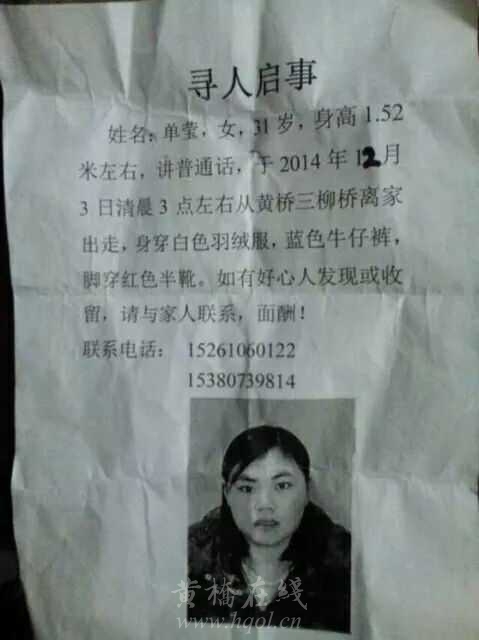 寻人启事
姓名：单莹，女，31岁，身高1.52
米左右，讲普通话，于2014年12月
3日清晨3点左右从黄桥三柳桥离家
出走，身穿白色羽绒服，蓝色牛仔裤，
脚穿红色半靴。如有好心人发现或收
留，请与家人联系，面酬！
联系电话： 15261060122
15380739814
黄橋在綫
www.hqol.cn